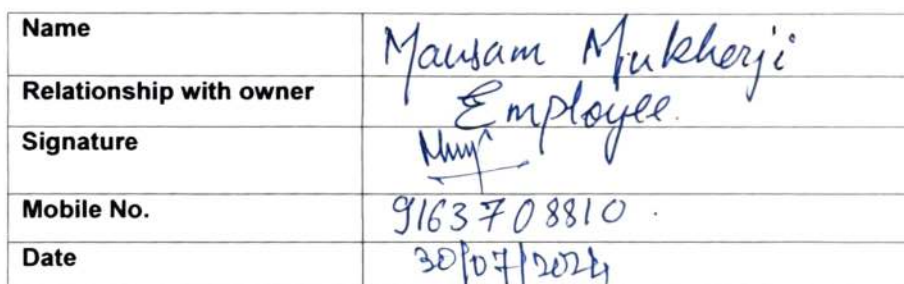 Name Mausam Mukherji
Relationship with owner Employee.
Signature
Mobile No. 9163708810.
Date 30/07/2024